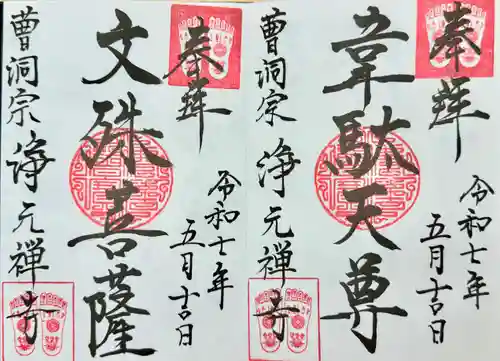 奉拝
令和七年
五月吉日
韋駄天尊
曹洞宗 浄元禅寺
奉拝
令和七年
五月吉日
文殊菩薩
曹洞宗 浄元禅寺